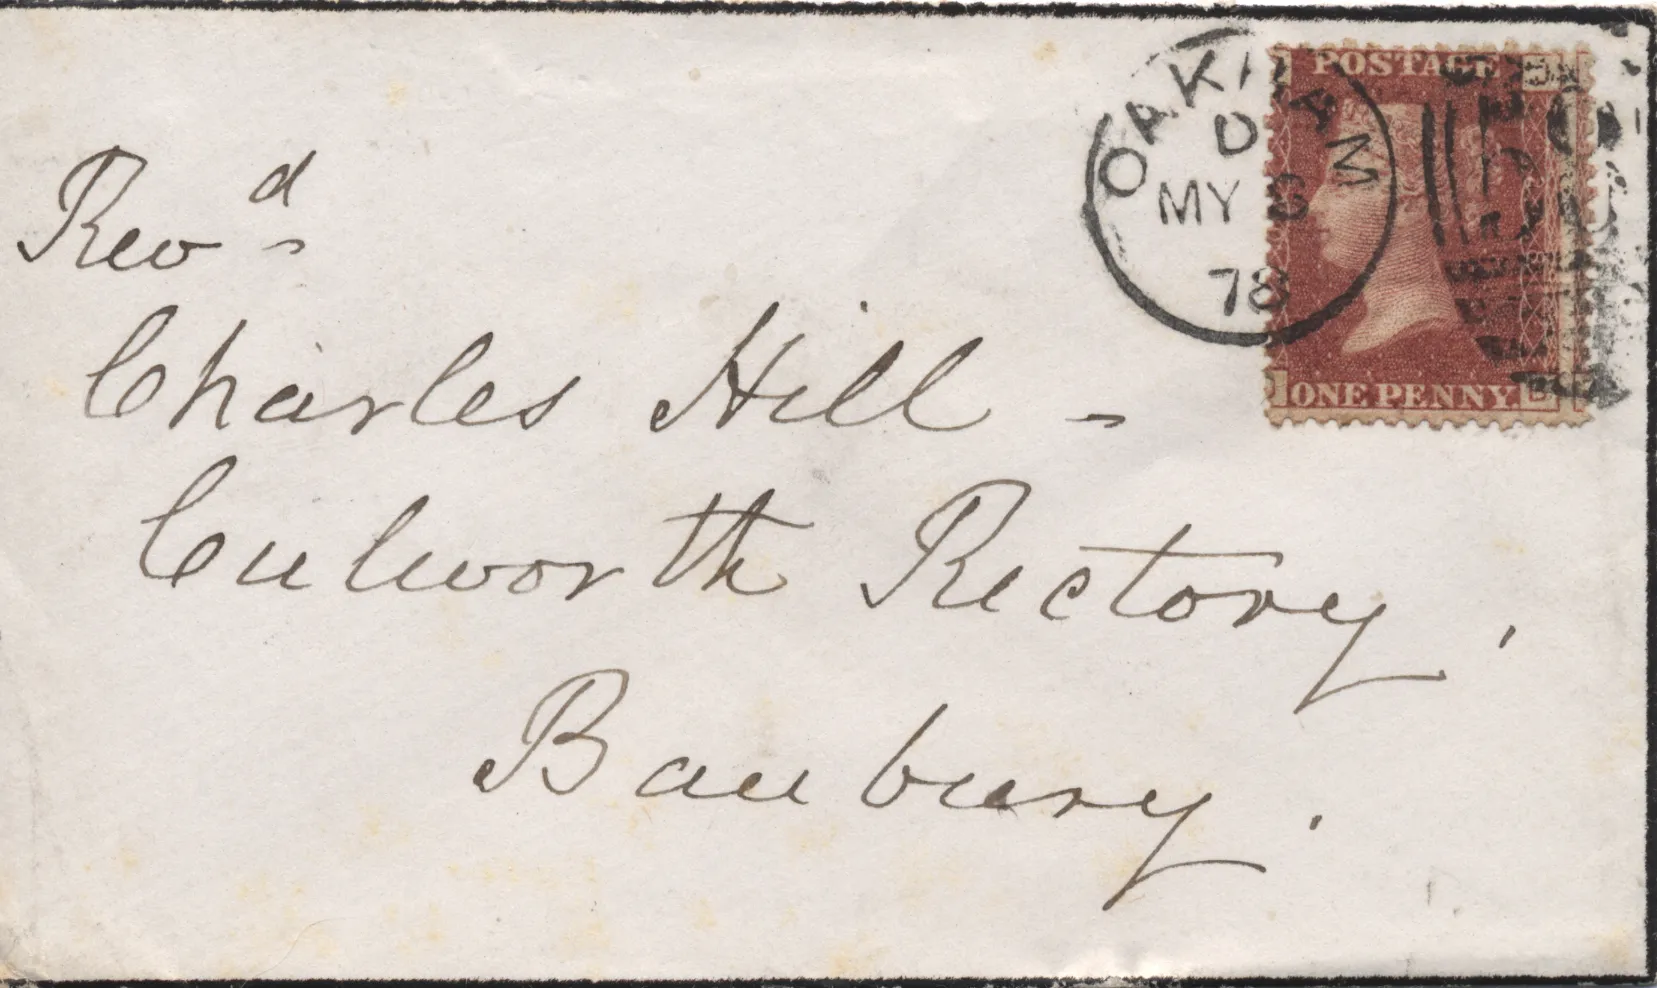 Revd -
Charles Hill -
Culworth Rectory.
Banbury.
OAKHAM
D
MY
78
POSTAGE
ONE PENNY